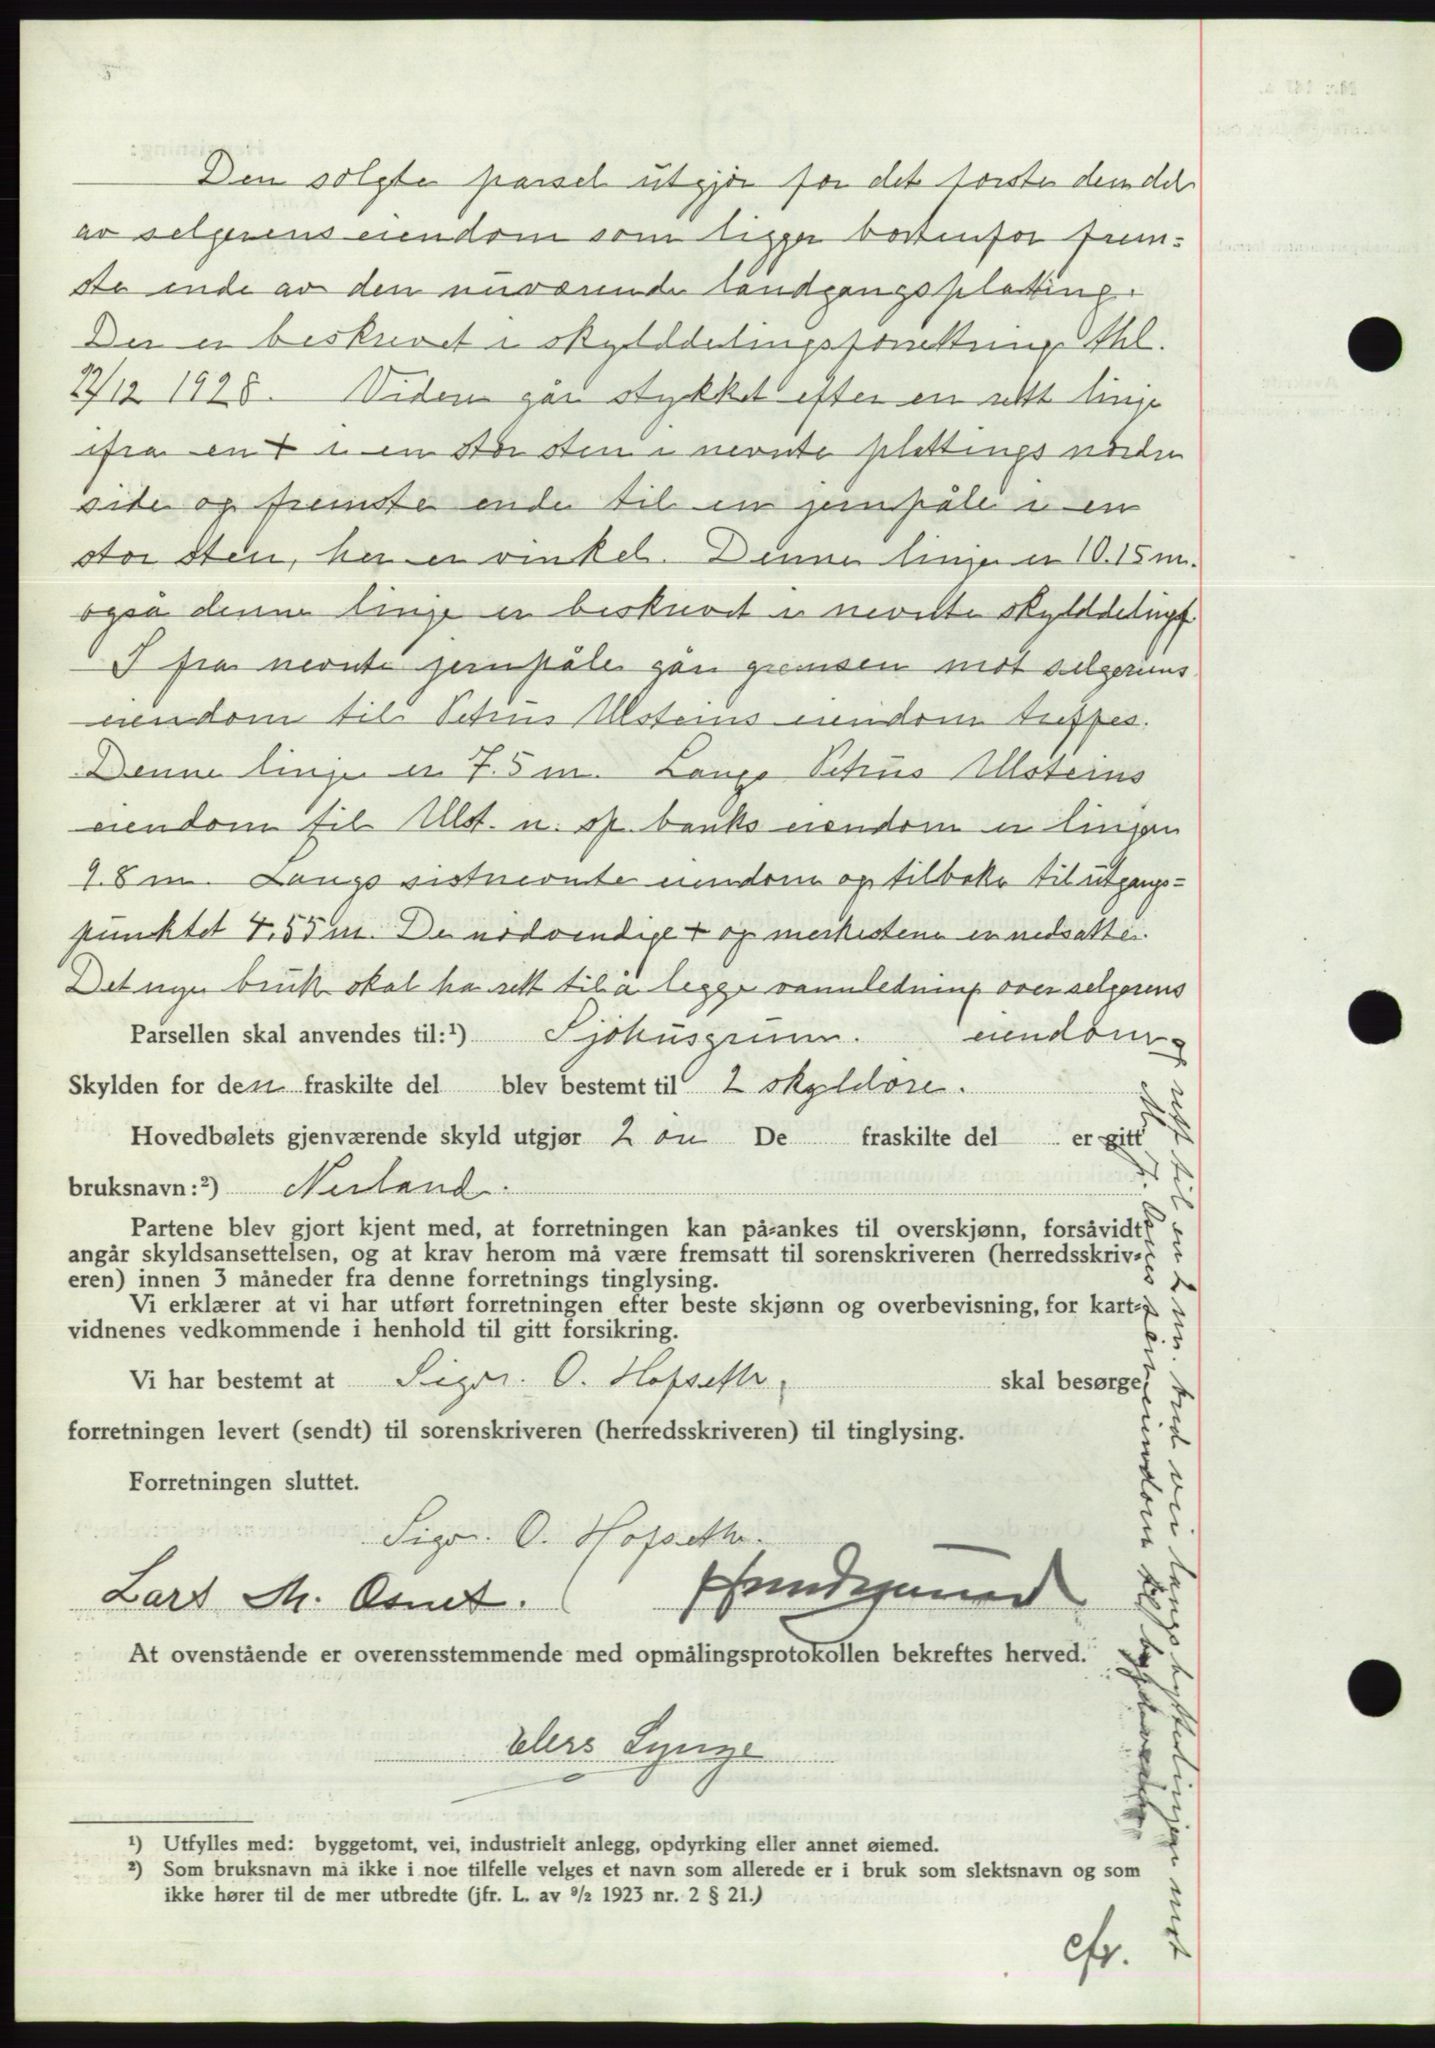 Den solgte parsel utgjør for det første den del
av selgerens eiendom som ligger bortenfor frem=
ste ende av den nuværende landgangsplatting.
Den er beskrevet i skylddelingsforrettning thl.
22/12 1928. Videre går stykket efter en rett linje
ifra en + i en stor sten i nevnte plattings nordre
side og fremste ende til en jernpåle i en
stor sten, her er vinkel. Denne linje er 10.15 m.
også denne linje er beskrevet i nevnte skylddelingsf.
I fra nevnte jernpåle går grensen mot selgerens
eiendom til Petrus Ulsteins eiendom treffes.
Denne linje er 7.5 m. Langs Petrus Ulsteins
eiendom til Ulst. n. sp. banks eiendom er linjen
9.8 m. Langs sistnevnte eiendom og tilbake til utgangs=
punktet 4,55 m. De nødvendige + og merkestene er nedsatte.
Det nye bruk skal ha rett til å legge vannledning over selgerens
Parsellen skal anvendes til:¹) Sjøhusgrunn. eiendom
Skylden for den fraskilte del blev bestemt til 2 skyldøre.
Hovedbølets gjenværende skyld utgjør 2 øre De fraskilte del er gitt
bruksnavn:²) Nerland.
Partene blev gjort kjent med, at forretningen kan på-ankes til overskjønn, forsåvidt
angår skyldsansettelsen, og at krav herom må være fremsatt til sorenskriveren (herredsskriv=
eren) innen 3 måneder fra denne forretnings tinglysing.
Vi erklærer at vi har utført forretningen efter beste skjønn og overbevisning, for kart=
vidnenes vedkommende i henhold til gitt forsikring.
Vi har bestemt at Sigv. O. Hofseth, skal besørge
forretningen levert (sendt) til sorenskriveren (herredsskriveren) til tinglysing.
Forretningen sluttet.
Sigv. O. Hofseth.
Lars M. Osnes.
At ovenstående er overensstemmende med opmålingsprotokollen bekreftes herved.
Elers Lynge
¹) Utfylles med: byggetomt, vei, industrielt anlegg, opdyrking eller annet øiemed.
²) Som bruksnavn må ikke i noe tilfelle velges et navn som allerede er i bruk som slektsnavn og som
ikke hører til de mer utbredte (jfr. L. av 9/2 1923 nr. 2 § 21.)
og rett til en 2 m. bred vei langs byttelinjen mot
M. T. Osnes eiendom til bygdeveien
cfr.